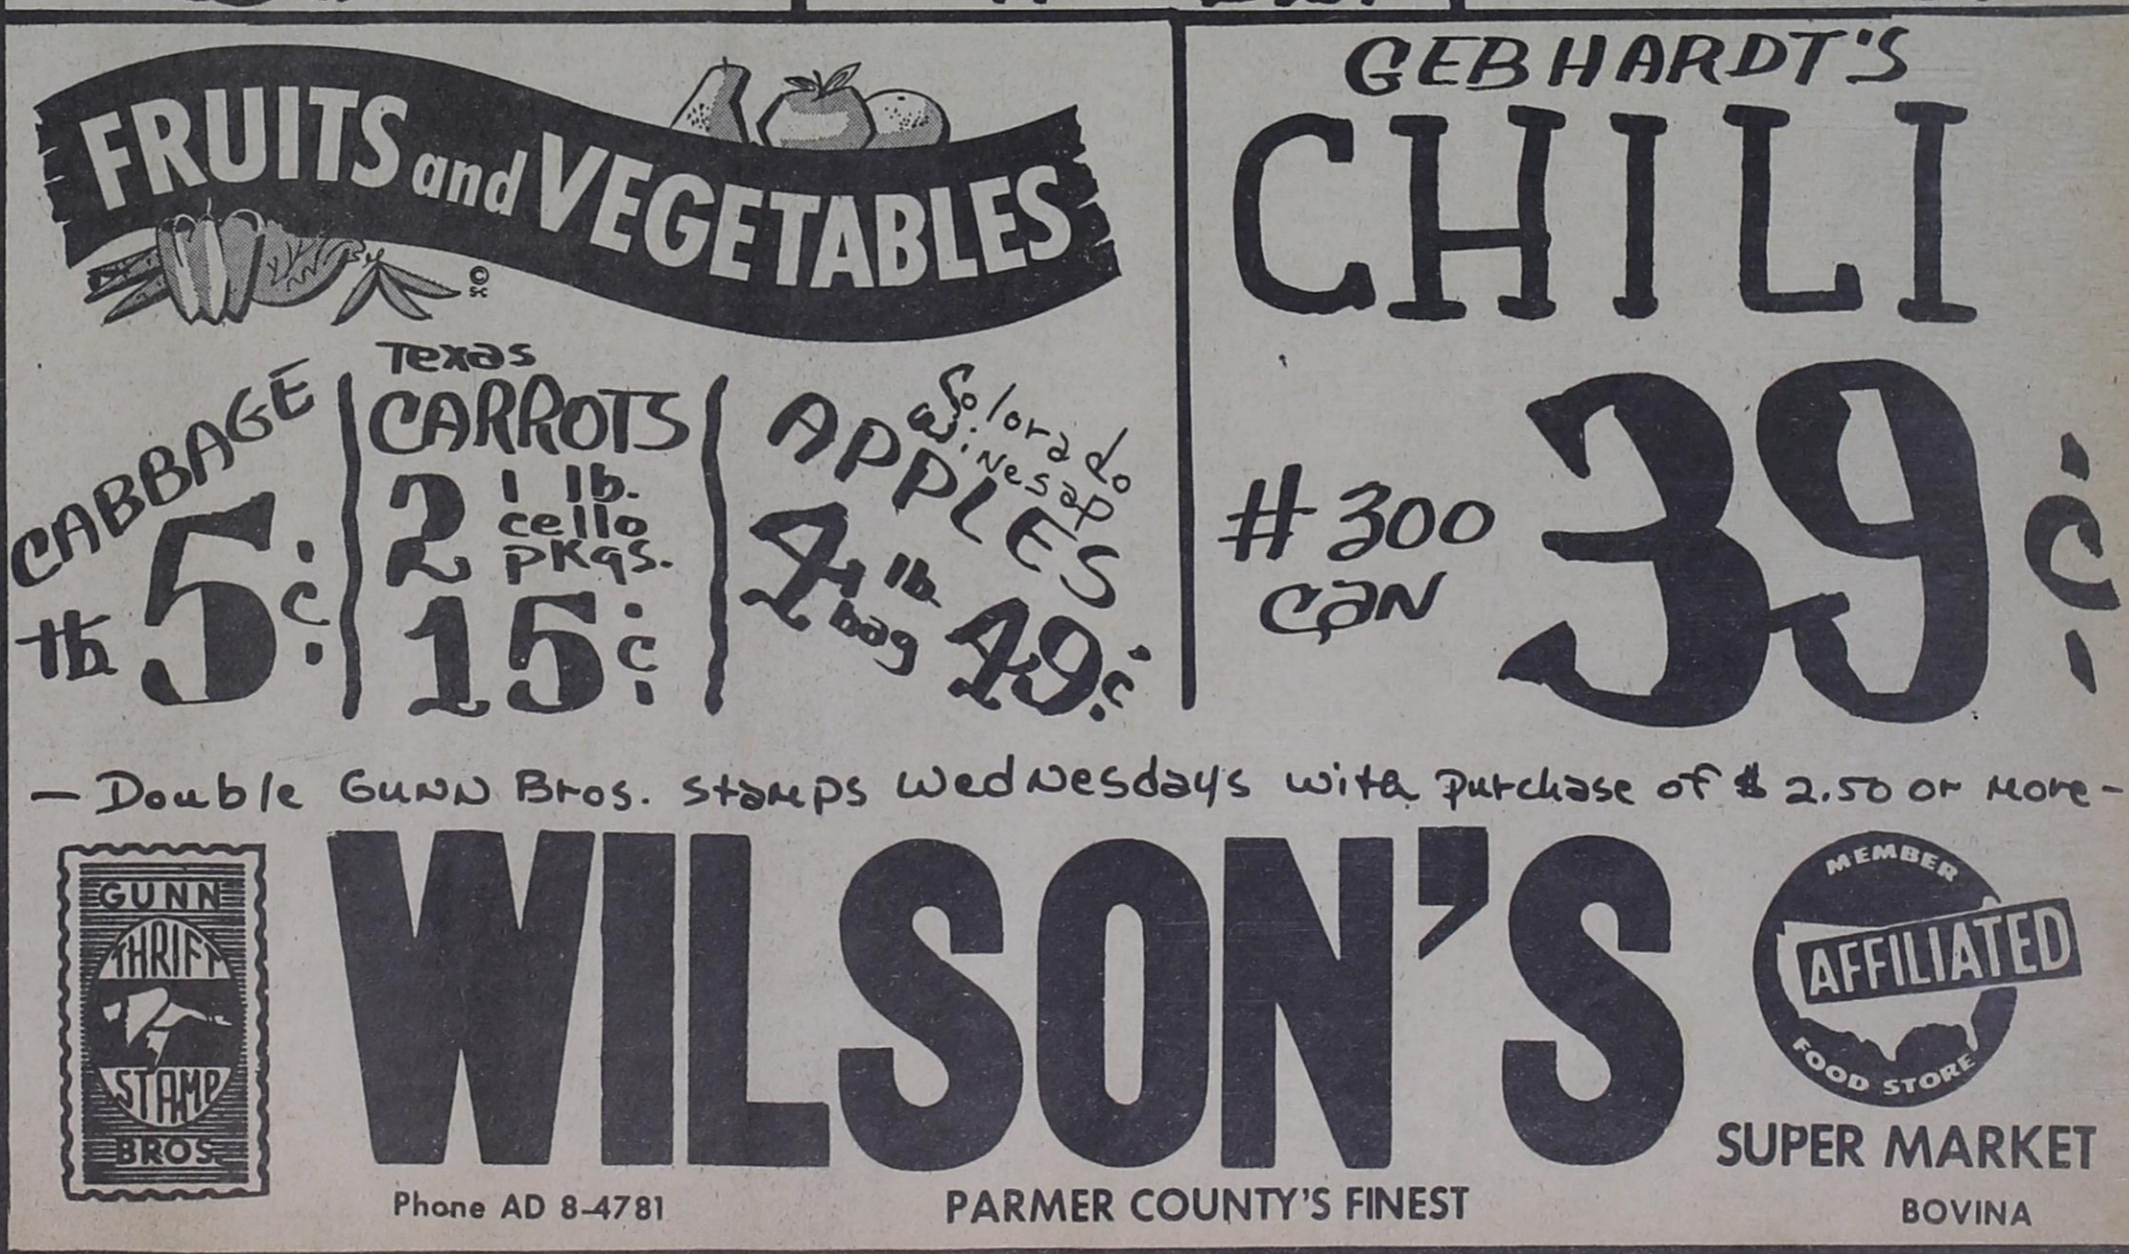 FRUITS and VEGETABLES
© SC
CABBAGE
lb 5¢
Texas
CARROTS
2 1 lb.
cello
pkgs.
15¢
Colorado
Winesap
APPLES
4 lb.
bag 49¢
GEBHARDT'S
CHILI
# 300
can
39¢
— Double Gunn Bros. stamps Wednesdays with purchase of $2.50 or more —
GUNN
THRIFT
STAMP
BROS.
WILSON'S
MEMBER
AFFILIATED
FOOD STORE
SUPER MARKET
Phone AD 8-4781
PARMER COUNTY'S FINEST
BOVINA